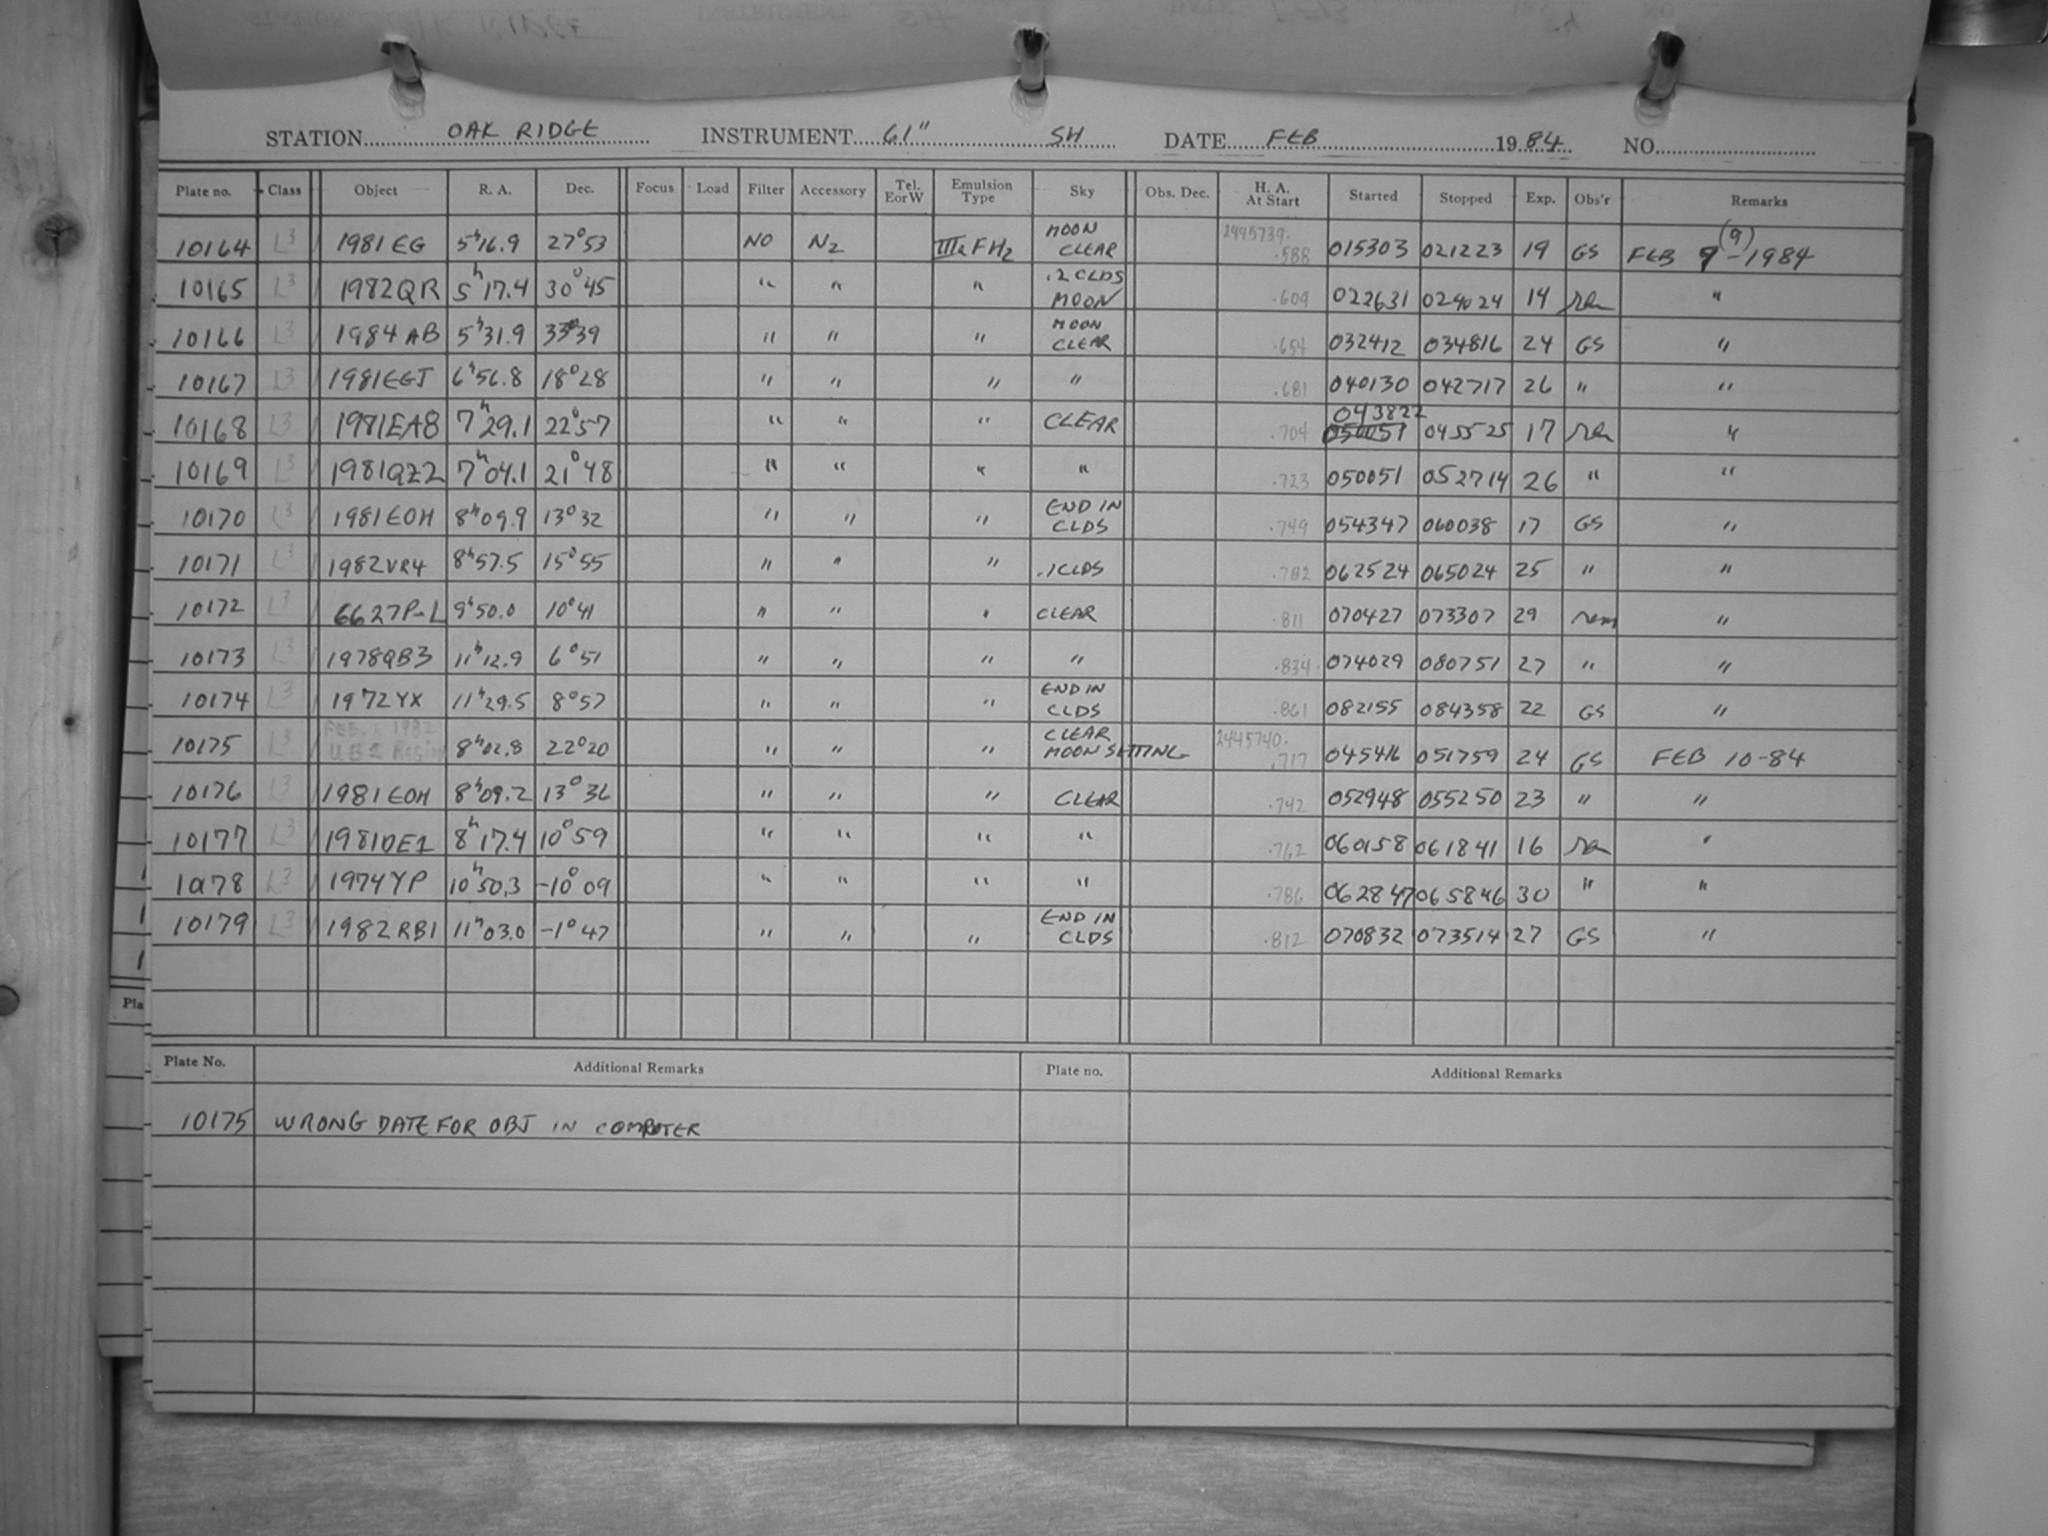 STATION OAK RIDGE INSTRUMENT 61" SH DATE FEB 1984 NO.
Plate no. Class Object R. A. Dec. Focus Load Filter Accessory Tel. EorW Emulsion Type Sky Obs. Dec. H. A. At Start Started Stopped Exp. Obs'r Remarks
10164 L3 1981 EG 5h16.9 27°53 NO N2 IIIaFH2 MOON CLEAR 2445739. .588 015303 021223 19 GS FEB 9 (9) -1984
10165 L3 1982QR 5h17.4 30°45 " " " .2 CLDS MOON .609 022631 024024 14 "
10166 L3 1984 AB 5h31.9 33°39 " " " MOON CLEAR .654 032412 034816 24 GS "
10167 L3 1981EGJ 6h56.8 18°28 " " " " .681 040130 042717 26 " "
10168 L3 1981EA8 7h29.1 22°57 " " " CLEAR .704 043822 050051 045525 17 "
10169 L3 1981QZ2 7h04.1 21°48 " " " " .723 050051 052714 26 " "
10170 L3 1981EOH 8h09.9 13°32 " " " END IN CLDS .749 054347 060038 17 GS "
10171 L3 1982VR4 8h57.5 15°55 " " " .1CLDS .782 062524 065024 25 " "
10172 L3 6627P-L 9h50.0 10°41 " " " CLEAR .811 070427 073307 29 rem "
10173 L3 1978QB3 11h12.9 6°51 " " " " .834 074029 080751 27 " "
10174 L3 1972YX 11h29.5 8°57 " " " END IN CLDS .861 082155 084358 22 GS "
10175 L3 FEB. 1982 UB1 Region 8h02.8 22°20 " " " CLEAR MOON SETTING 2445740. .717 045416 051759 24 GS FEB 10-84
10176 L3 1981EOH 8h09.2 13°36 " " " CLEAR .742 052948 055250 23 " "
10177 L3 1981DE1 8h17.4 10°59 " " " " .762 060158 061841 16 "
10178 L3 1974YP 10h50.3 -10°09 " " " " .786 062847 065846 30 " "
10179 L3 1982RB1 11h03.0 -1°47 " " " END IN CLDS .812 070832 073514 27 GS "
Pla
Plate No. Additional Remarks Plate no. Additional Remarks
10175 WRONG DATE FOR OBJ IN COMPUTER